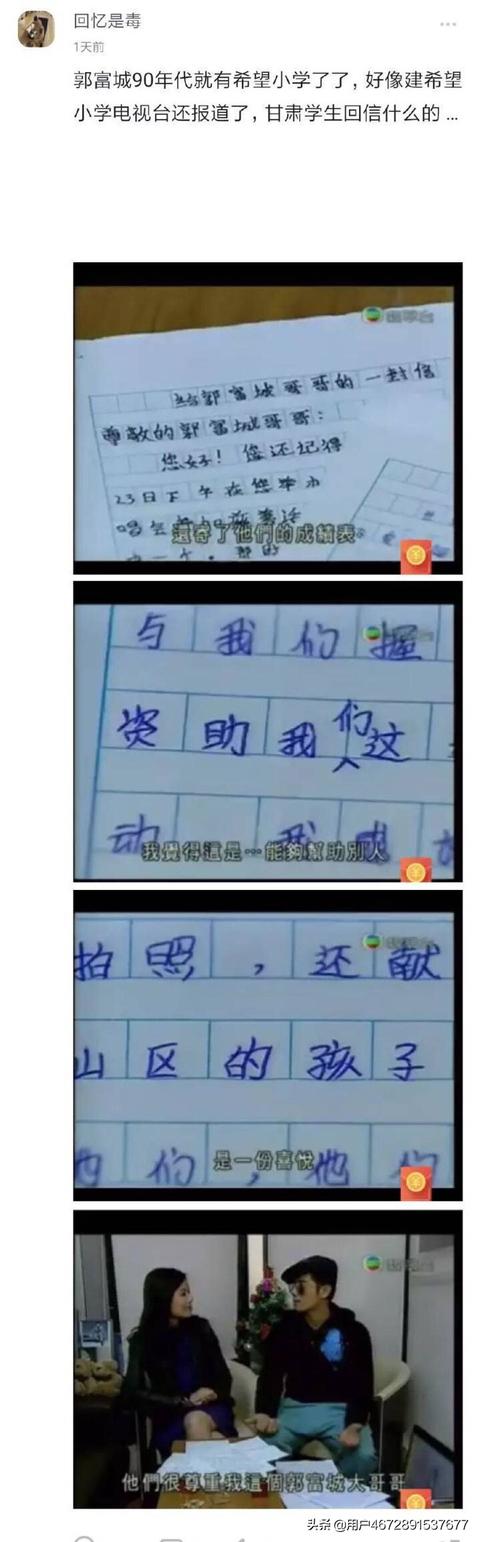 回忆是毒
1天前
郭富城90年代就有希望小学了了，好像建希望
小学电视台还报道了，甘肃学生回信什么的 ...
给郭富城哥哥的一封信
尊敬的郭富城哥哥：
您好！您还记得
23日下午在您举办
還寄了他們的成績表
与我们握
资助我们这
动
我覺得這是…能夠幫助別人
拍照，还献
山区的孩子
们，他们
是一份喜悅
他們很尊重我這個郭富城大哥哥
头条 @用户4672891537677